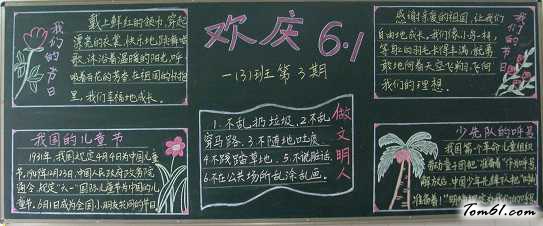 欢庆 6.1
一(3)班第3期
我们的节日
戴上鲜红的领巾,穿起
漂亮的衣裳,快乐地跳舞唱
歌,沐浴着温暖的阳光,呼
吸着百花的芳香,在祖国的怀抱
里,我们幸福地成长。
我们的节日
感谢亲爱的祖国,让我们
自由地成长。我们像小鸟一样,
等身上的羽毛长得丰满,就勇
敢地向着天空飞翔,飞向
我们的理想。
我国的儿童节
1931年,我国规定4月4日为中国儿童
节,1949年12月23日,中国人民政府政务院
通令,规定"六一"国际儿童节为中国的儿
童节。6月1日成为全国小朋友共同的节日
做文明人
1.不乱扔垃圾 2.不乱
穿马路 3.不随地吐痰
4.不践踏草地。 5.不说脏话。
6.不在公共场所乱涂乱画。
少先队的呼号
我国第个革命儿童组织
劳动童子团把"准备着"作为呼号,
解放后,中国少年先锋队把
准备着!"
Tom61.com